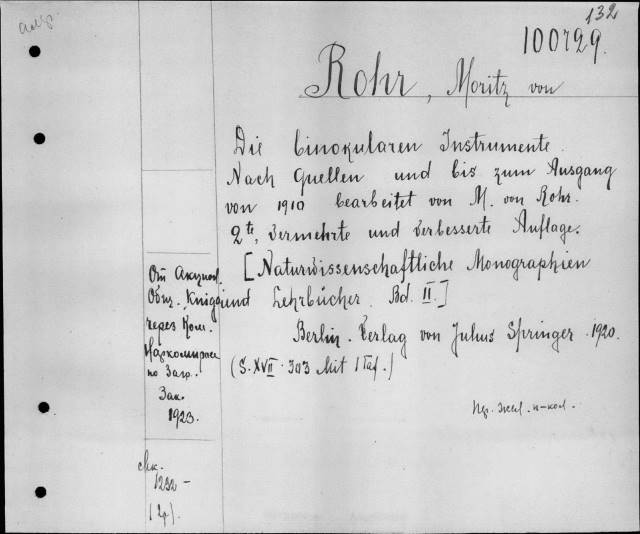 132
100729.
Rohr, Moritz von
Die binokularen Instrumente.
Nach Quellen und bis zum Ausgang
von 1910 bearbeitet von M. von Rohr.
2te, vermehrte und verbesserte Auflage.
[Naturwissenschaftliche Monographien
und Lehrbücher. Bd. II.]
Berlin. Verlag von Julius Springer. 1920.
(S. XVII. 303 Mit 1 Taf.)
От Акцион.
Общ. Книга
через Ком.
Наркомпрос
по Загр.
Зак.
1923.
1292 -